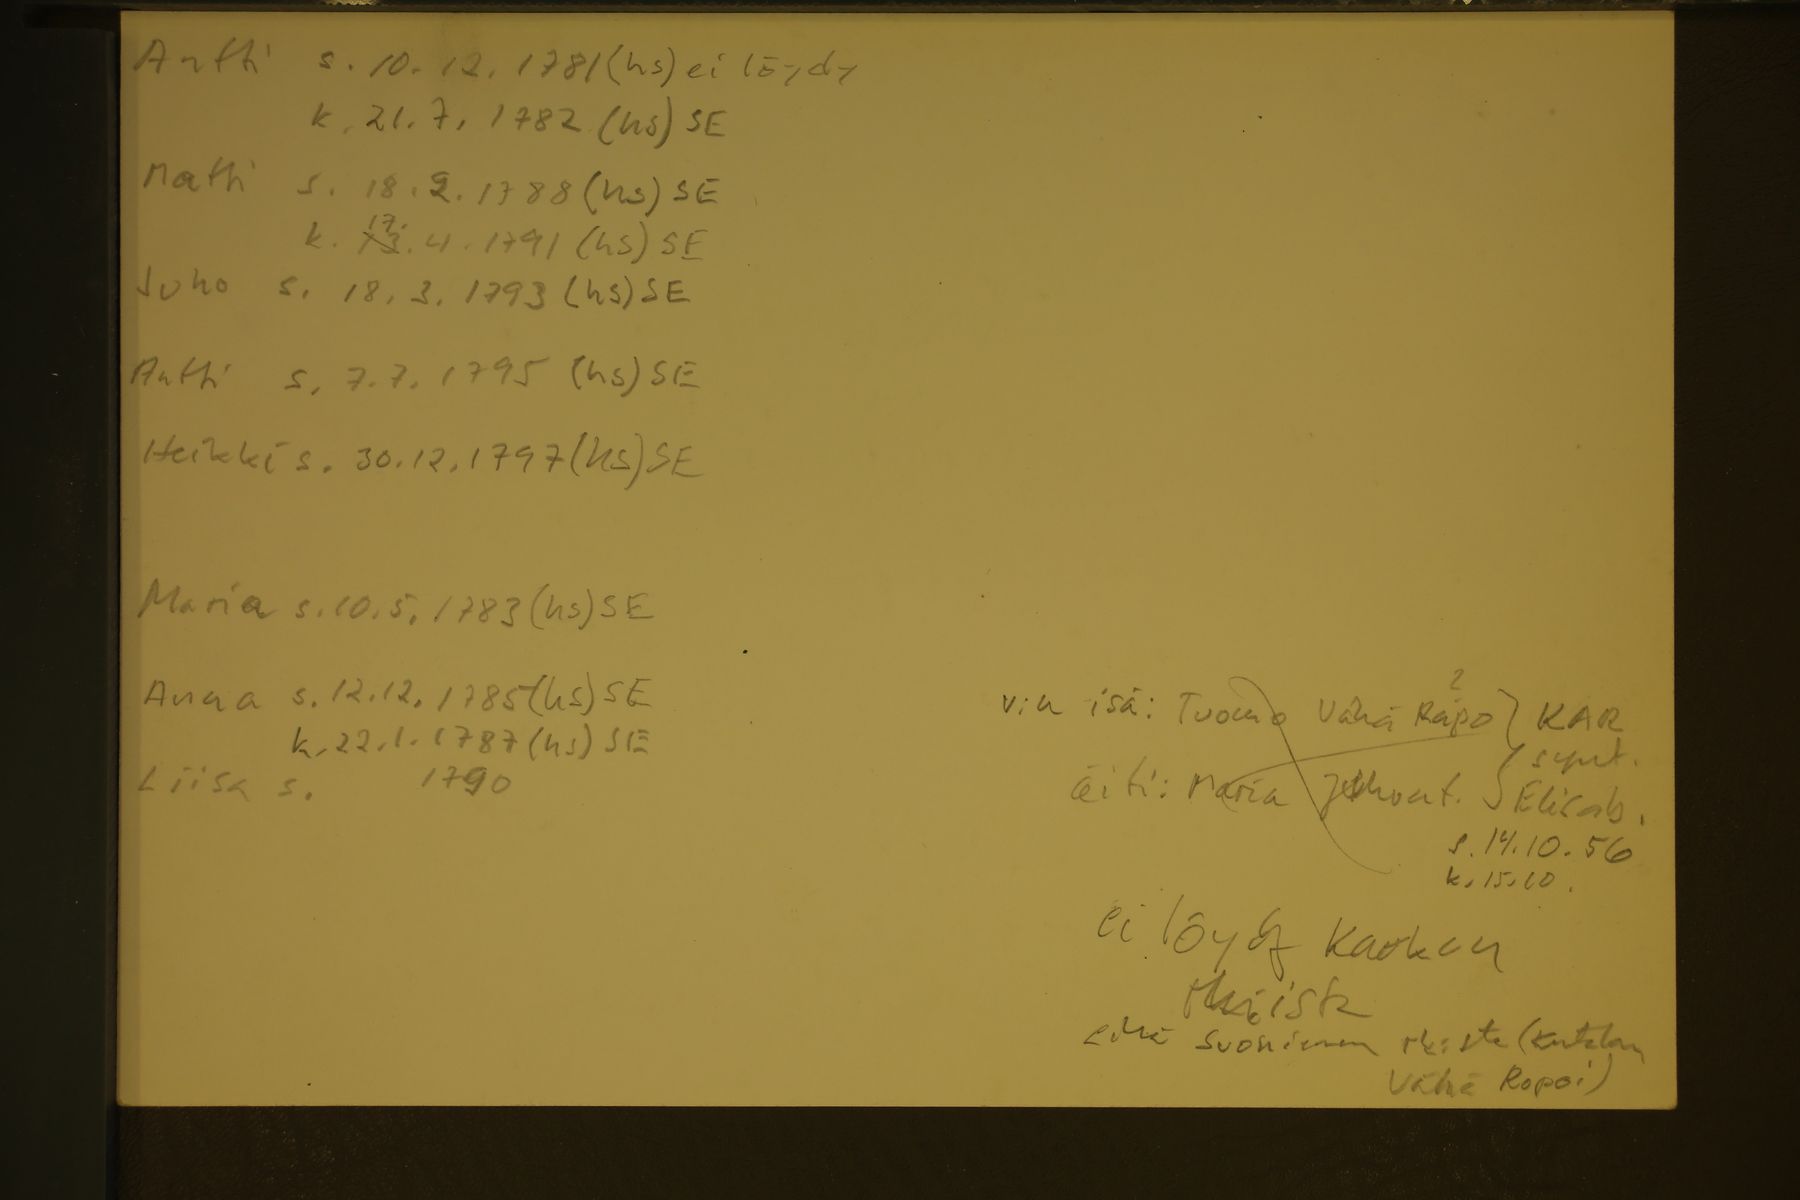 Antti s. 10.12.1781 (hs) ei löydy
k. 21.7.1782 (hs) SE
Matti s. 18.2.1788 (hs) SE
k. 17.4.1791 (hs) SE
Juho s. 18.3.1793 (hs) SE
Antti s. 7.7.1795 (hs) SE
Heikki s. 30.12.1797 (hs) SE
Maria s. 10.5.1783 (hs) SE
Anna s. 12.12.1785 (hs) SE
k. 22.1.1787 (hs) SE
Liisa s. 1790
v:n isä: Tuomo Vähä Räpo ? } KAR
äiti: Maria Juhont. } synt.
Elisab.
s. 14.10.56
k. 15.10.
ei löydy Karkun
rk:ista
eikä Suoniemen rk:sta (
Vähä Ropoi)